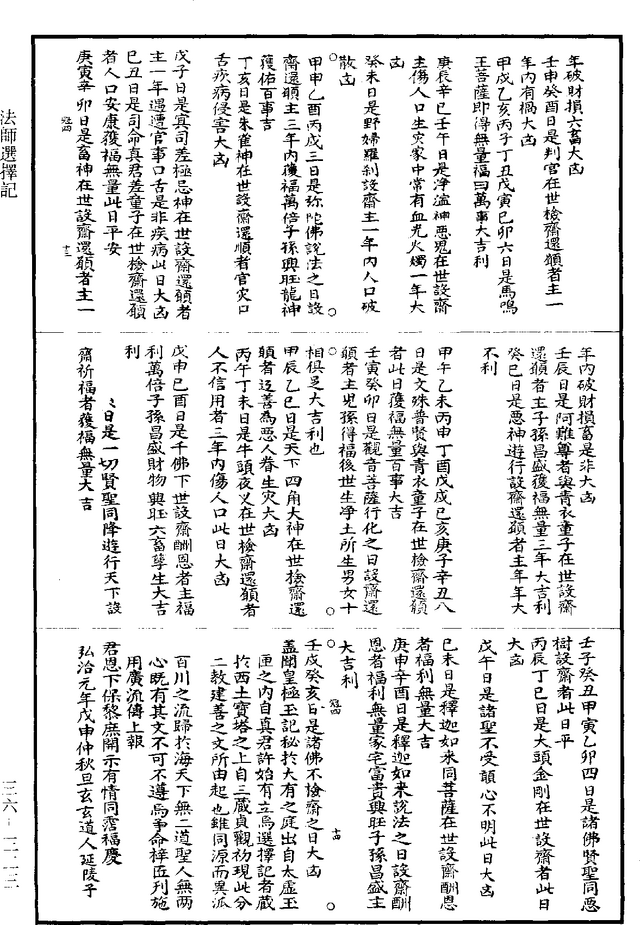 法師選擇記
年破財損六畜大凶
壬申癸酉日是判官在世檢齋還願者主一
年內有禍大凶
甲戌乙亥丙子丁丑戊寅己卯六日是馬鳴
王菩薩即得無量福曰萬事大吉利
庚辰辛巳壬午日是淨溢神惡鬼在世設齋
主傷人口生災家中常有血光火燭一年大
凶
癸未日是野婦羅剎設齋主一年內人口破
散凶
甲申乙酉丙戌三日是弥陀佛說法之日設
齋還願主三年內獲福萬倍子孫興旺龍神
獲佑百事吉
丁亥日是朱雀神在世設齋還順者官灾口
舌疾病侵害大凶
戊子日是真司差極忌神在世設齋還願者
主一年遇遭官事口舌是非疾病此日大凶
己丑日是司命真君差童子在世檢齋還願
者人口安康獲福無量此日平安
庚寅辛卯日是畜神在世設齋還願者主一
年內破財損畜是非大凶
壬辰日是阿難尊者與青衣童子在世設齋
還願者主子孫昌盛獲福無量三年大吉利
癸巳日是惡神遊行設齋還願者主年年大
不利
甲午乙未丙申丁酉戊戌己亥庚子辛丑八
日是文殊普賢與青衣童子在世檢齋還願
者此日獲福無量百事大吉
壬寅癸卯日是觀音菩薩行化之日設齋還
願者主兒孫得福後世生淨土所生男女十
相俱足大吉利也
甲辰乙巳日是天下四角大神在世檢齋還
願者返善為惡人眷生灾大凶
丙午丁未日是牛頭夜叉在世檢齋還願者
人不信用者三年內傷人口此日大凶
戊申己酉日是千佛下世設齋酬恩者主福
利萬倍子孫昌盛財物興旺六畜孳生大吉
利
日是一切賢聖同降遊行天下設
齋祈福者獲福無量大吉
壬子癸丑甲寅乙卯四日是諸佛賢聖同惡
樹設齋者此日平
丙辰丁巳日是大頭金剛在世設齋者此日
大凶
戊午日是諸聖不受願心不明此日大凶
己未日是釋迦如來同菩薩在世設齋酬恩
者福利無量大吉
庚申辛酉日是釋迦如來說法之日設齋酬
恩者福利無量家宅富貴興旺子孫昌盛主
大吉利
壬戌癸亥日是諸佛不檢齋之日大凶
蓋聞皇極玉記秘於大有之庭出自太虛玉
匣之內自真君許始有立焉選擇記者藏
於西土寶塔之上自三藏貞觀初現此分
二教建善之文所由起也雖同源而異派
百川之流歸於海天下無二道聖人無兩
心既有其文不可不遵焉爭命梓匠列施
用廣流傳上報
君恩下保黎庶開示有情同霑福慶
弘治元年戊申仲秋旦玄玄道人延陵子